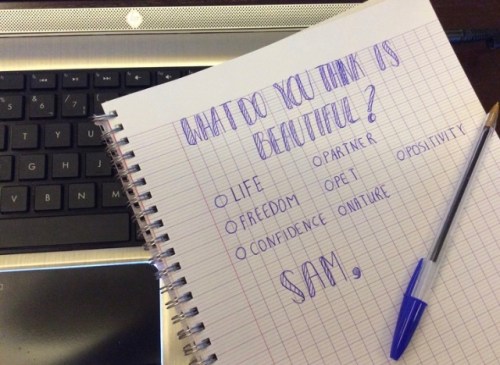 WHAT DO YOU THINK IS
BEAUTIFUL?
O LIFE
O PARTNER
O POSITIVITY
O FREEDOM
O PET
O CONFIDENCE
O NATURE
SAM,
5
6
7
T
Y
U
G
H
J
V
B
N